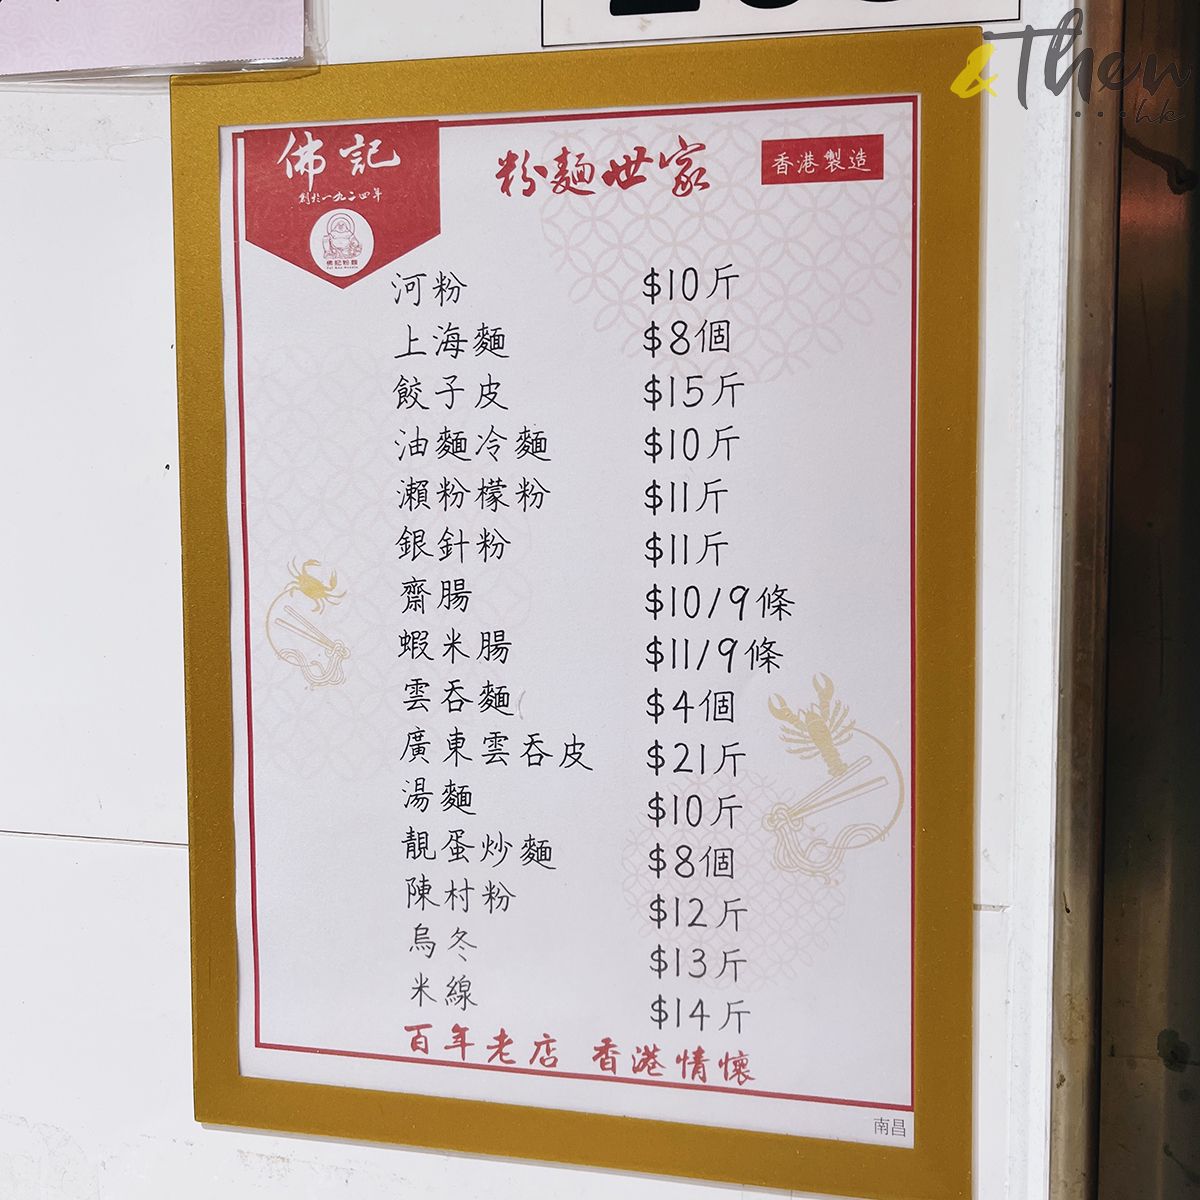 &Then
...hk
佛記
創於一九二四年
佛記粉麵
Fat Kee Noodle
粉麵世家
香港製造
河粉 $10斤
上海麵 $8個
餃子皮 $15斤
油麵冷麵 $10斤
瀨粉檬粉 $11斤
銀針粉 $11斤
齋腸 $10/9條
蝦米腸 $11/9條
雲吞麵 $4個
廣東雲吞皮 $21斤
湯麵 $10斤
靚蛋炒麵 $8個
陳村粉 $12斤
烏冬 $13斤
米線 $14斤
百年老店 香港情懷
南昌